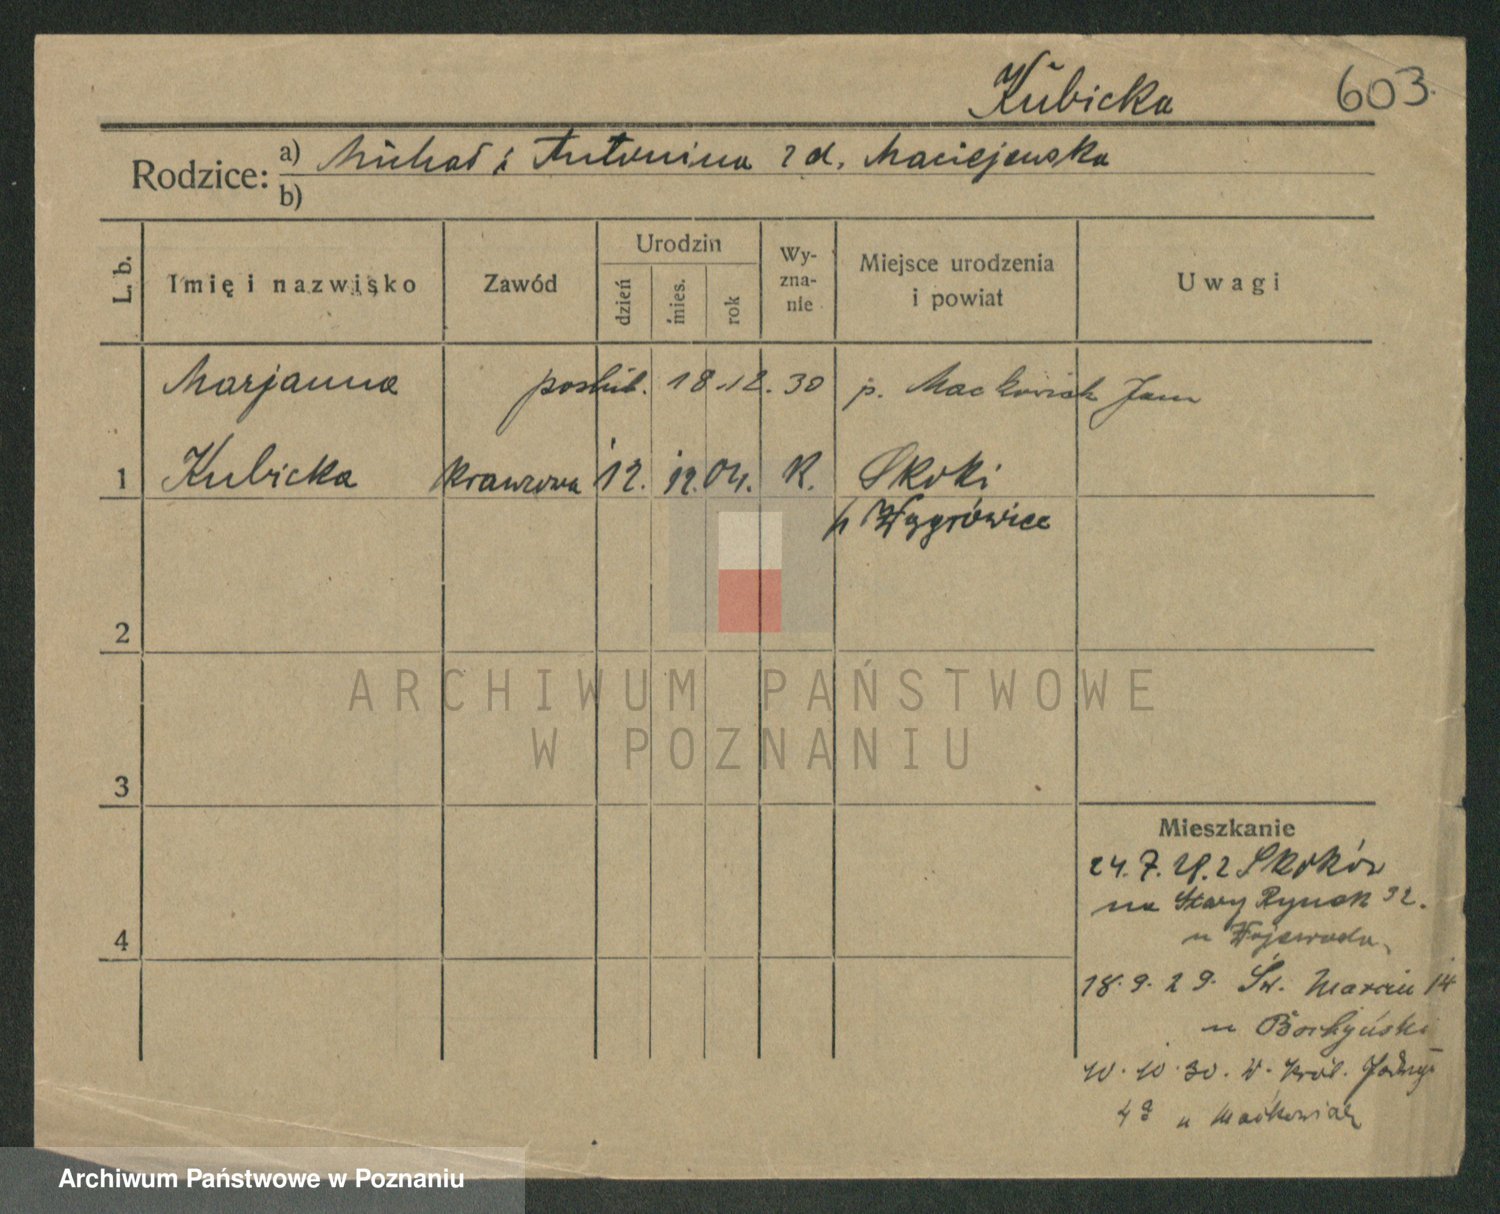 Kubicka 603.
Rodzice: a) Michał i Antonina z d. Maciejewska
b)
L. b. Imię i nazwisko Zawód Urodzin dzień mies. rok Wyznanie Miejsce urodzenia i powiat Uwagi
Marjanna poślub. 18.12.30 p. Maćkowiak Jan
1 Kubicka krawcowa 12. 12. 04. K. Skoki
p Wągrówiec
2
ARCHIWUM PAŃSTWOWE
W POZNANIU
3
Mieszkanie
24.7.28. z Skoków
na Stary Rynek 32.
u Wojewoda
4
18.9.29. Św. Marcin 14
u
10.10.30. W. Król. Jadwigi
4a u Maćkowiak
Archiwum Państwowe w Poznaniu